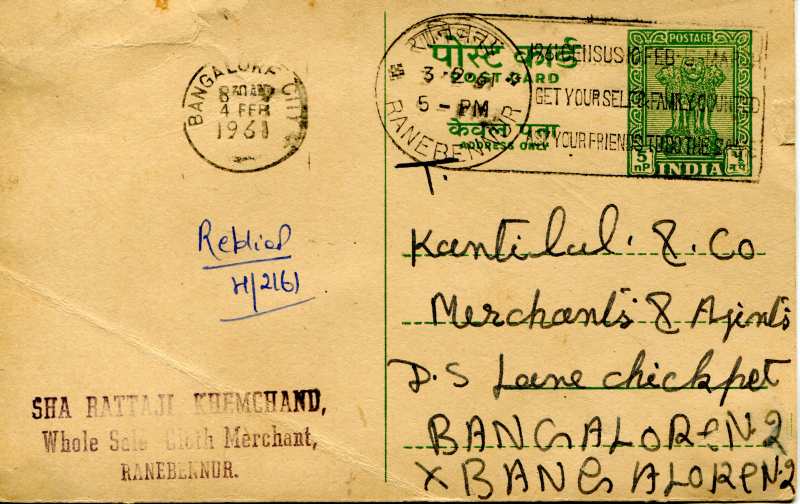 BANGALORE CITY
8 30 AM
4 FEB
1961
रानिबेन्नूर
3-2-61
5 - PM
RANEBENNUR
1961 CENSUS 10 FEB
GET YOURSELF & FAMILY COUNTED
ASK YOUR FRIENDS TO DO THE SAME
पोस्ट कार्ड
POST CARD
केवल पता
ADDRESS ONLY
POSTAGE
5 nP
INDIA
५ न.पै.
T.
Kantilal. & . Co
Merchant's & Agint's
D.S Lane chickpet
BANGALORe N.2
X BANGALORe N-2
Replied
4/2/61
SHA RATTAJI KHEMCHAND,
Whole Sale Cloth Merchant,
RANEBENNUR.